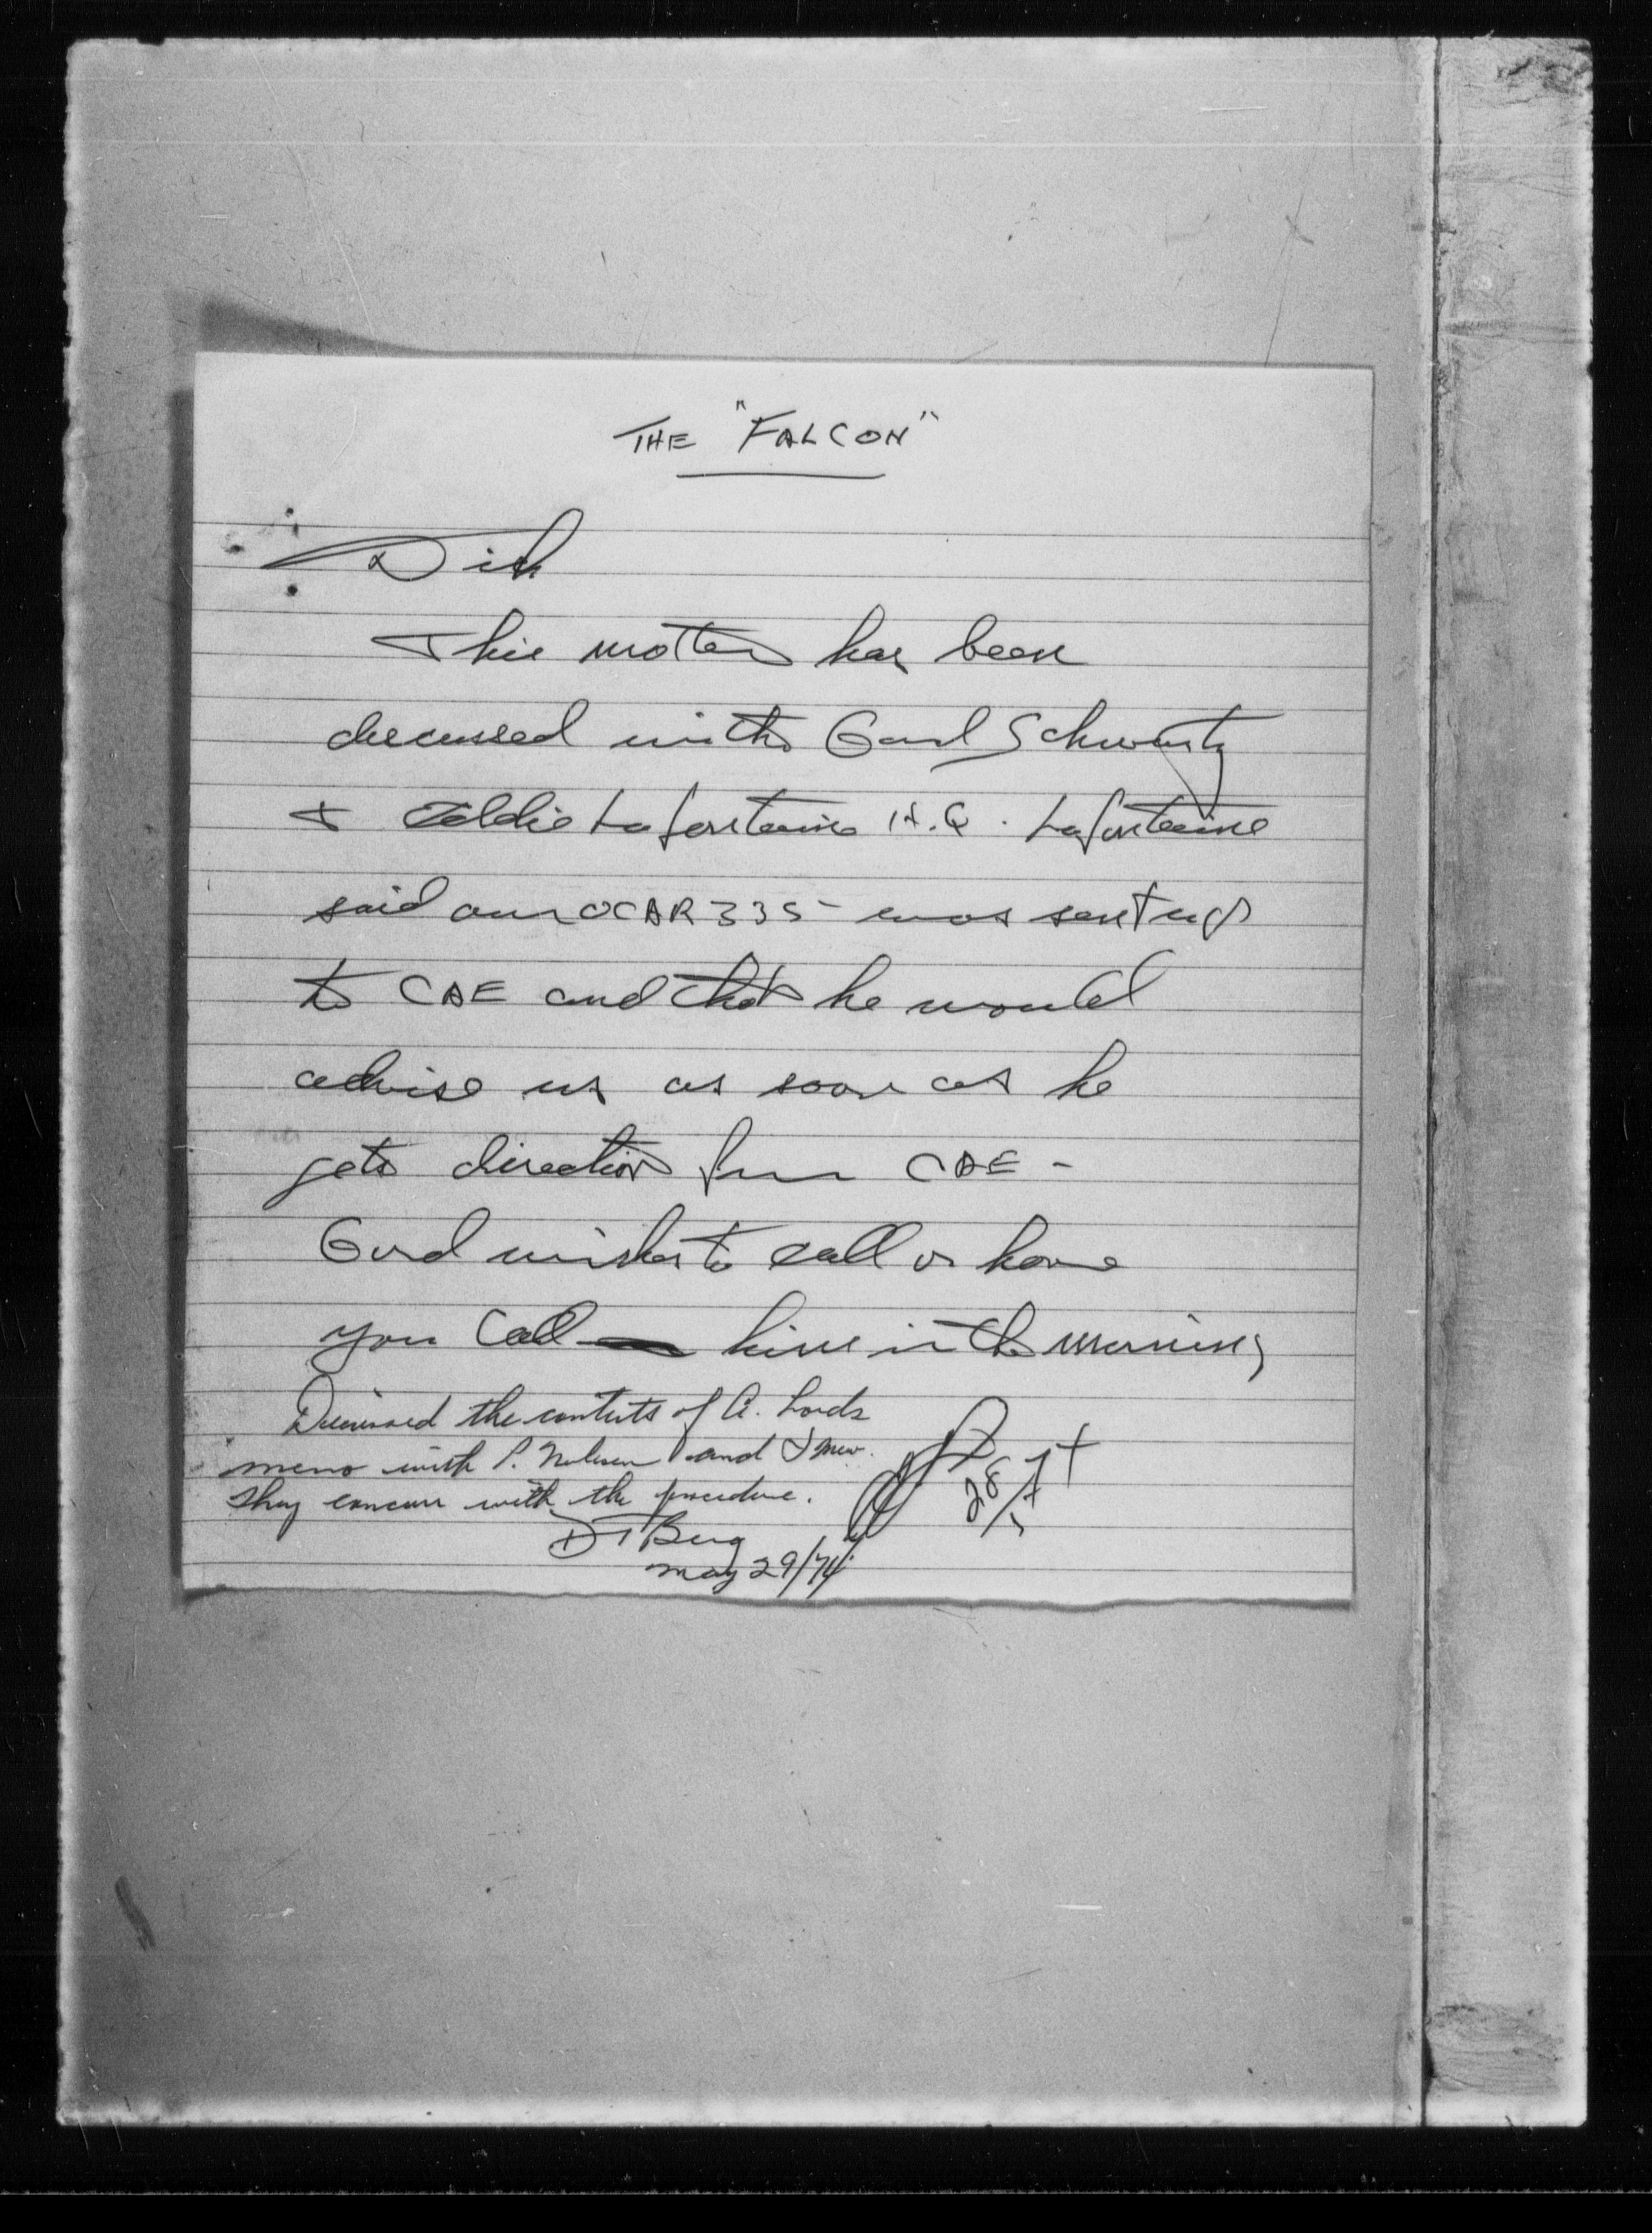 THE "FALCON"
Dick
This matter has been
discussed with Gord Schwartz
+ Eddie Lafontaine H.Q. Lafontaine
said our OCAR 335 - was sent up
to CAE and that he would
advise us as soon as he
gets direction from CAE -
Gord wishes to call or have
you call him in the morning
Discussed the contents of A. Lords
memo with P. and
they concur with the procedure.
28/5
DT Berg
May 29/74